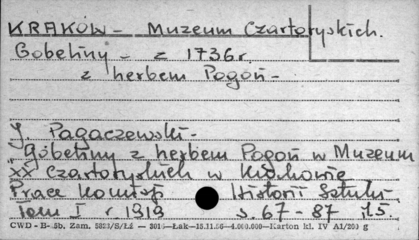 KRAKÓW - Muzeum Czartoryskich.
Gobeliny - z 1736r.
z herbem Pogoń -
J. Pagaczewski -
"Gobeliny z herbem Pogoń w Muzeum
XX Czartoryskich w Krakowie
Prace Komisji Historii Sztuki
Tom I r. 1919 s. 67-87 il 5.
CWD - B-5b. Zam. 5823/S/Łź - 3016-Łak-15.11.56-4.000.000-Karton kl. IV A1/200 g